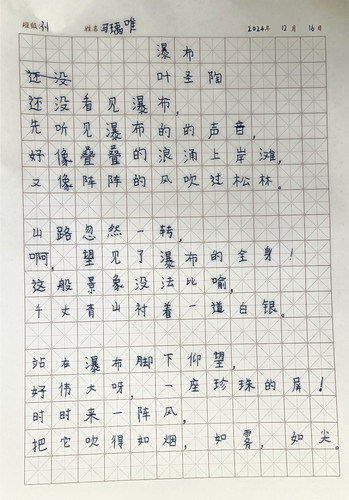 班级: 姓名 2024年 12月 16日
瀑布
还没 叶圣陶
还没看见瀑布,
先听见瀑布的的声音,
好像叠叠的浪涌上岸滩,
又像阵阵的风吹过松林。
山路忽然一转,
啊,望见了瀑布的全身!
这般景象没法比喻,
千丈青山衬着一道白银。
站在瀑布脚下仰望,
好伟大呀,一座珍珠的屏!
时时来一阵风,
把它吹得如烟,如雾,如尖。